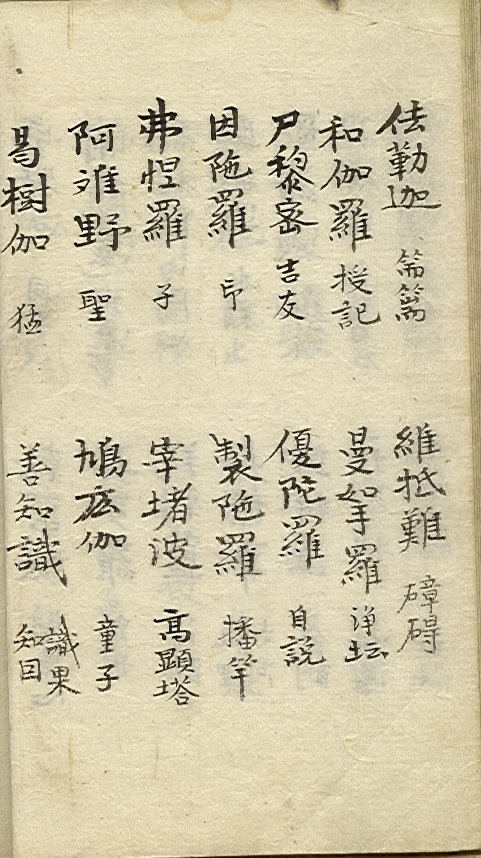 佉勒迦 篅
維抵難 碍
和伽羅 授記
曼挐羅 浄坛
尸黎密 吉友
優陀羅 自説
因陁羅 印
製陁羅 播竿
弗怛羅 子
宰堵波 高顯塔
阿野 聖
鳩伽 童子
曷樹伽 猛
善知識 識果知目